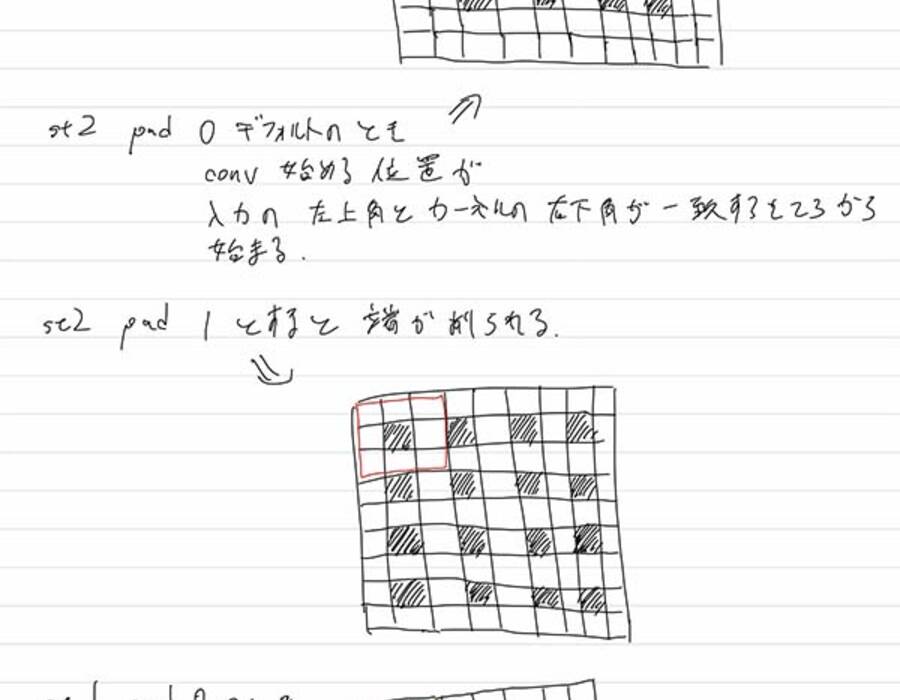 st2 pad 0 デフォルトのとき
conv 始める位置が
入力の左上角とカーネルの右下角が一致するところから
始まる.
st2 pad 1 とすると端が削られる.